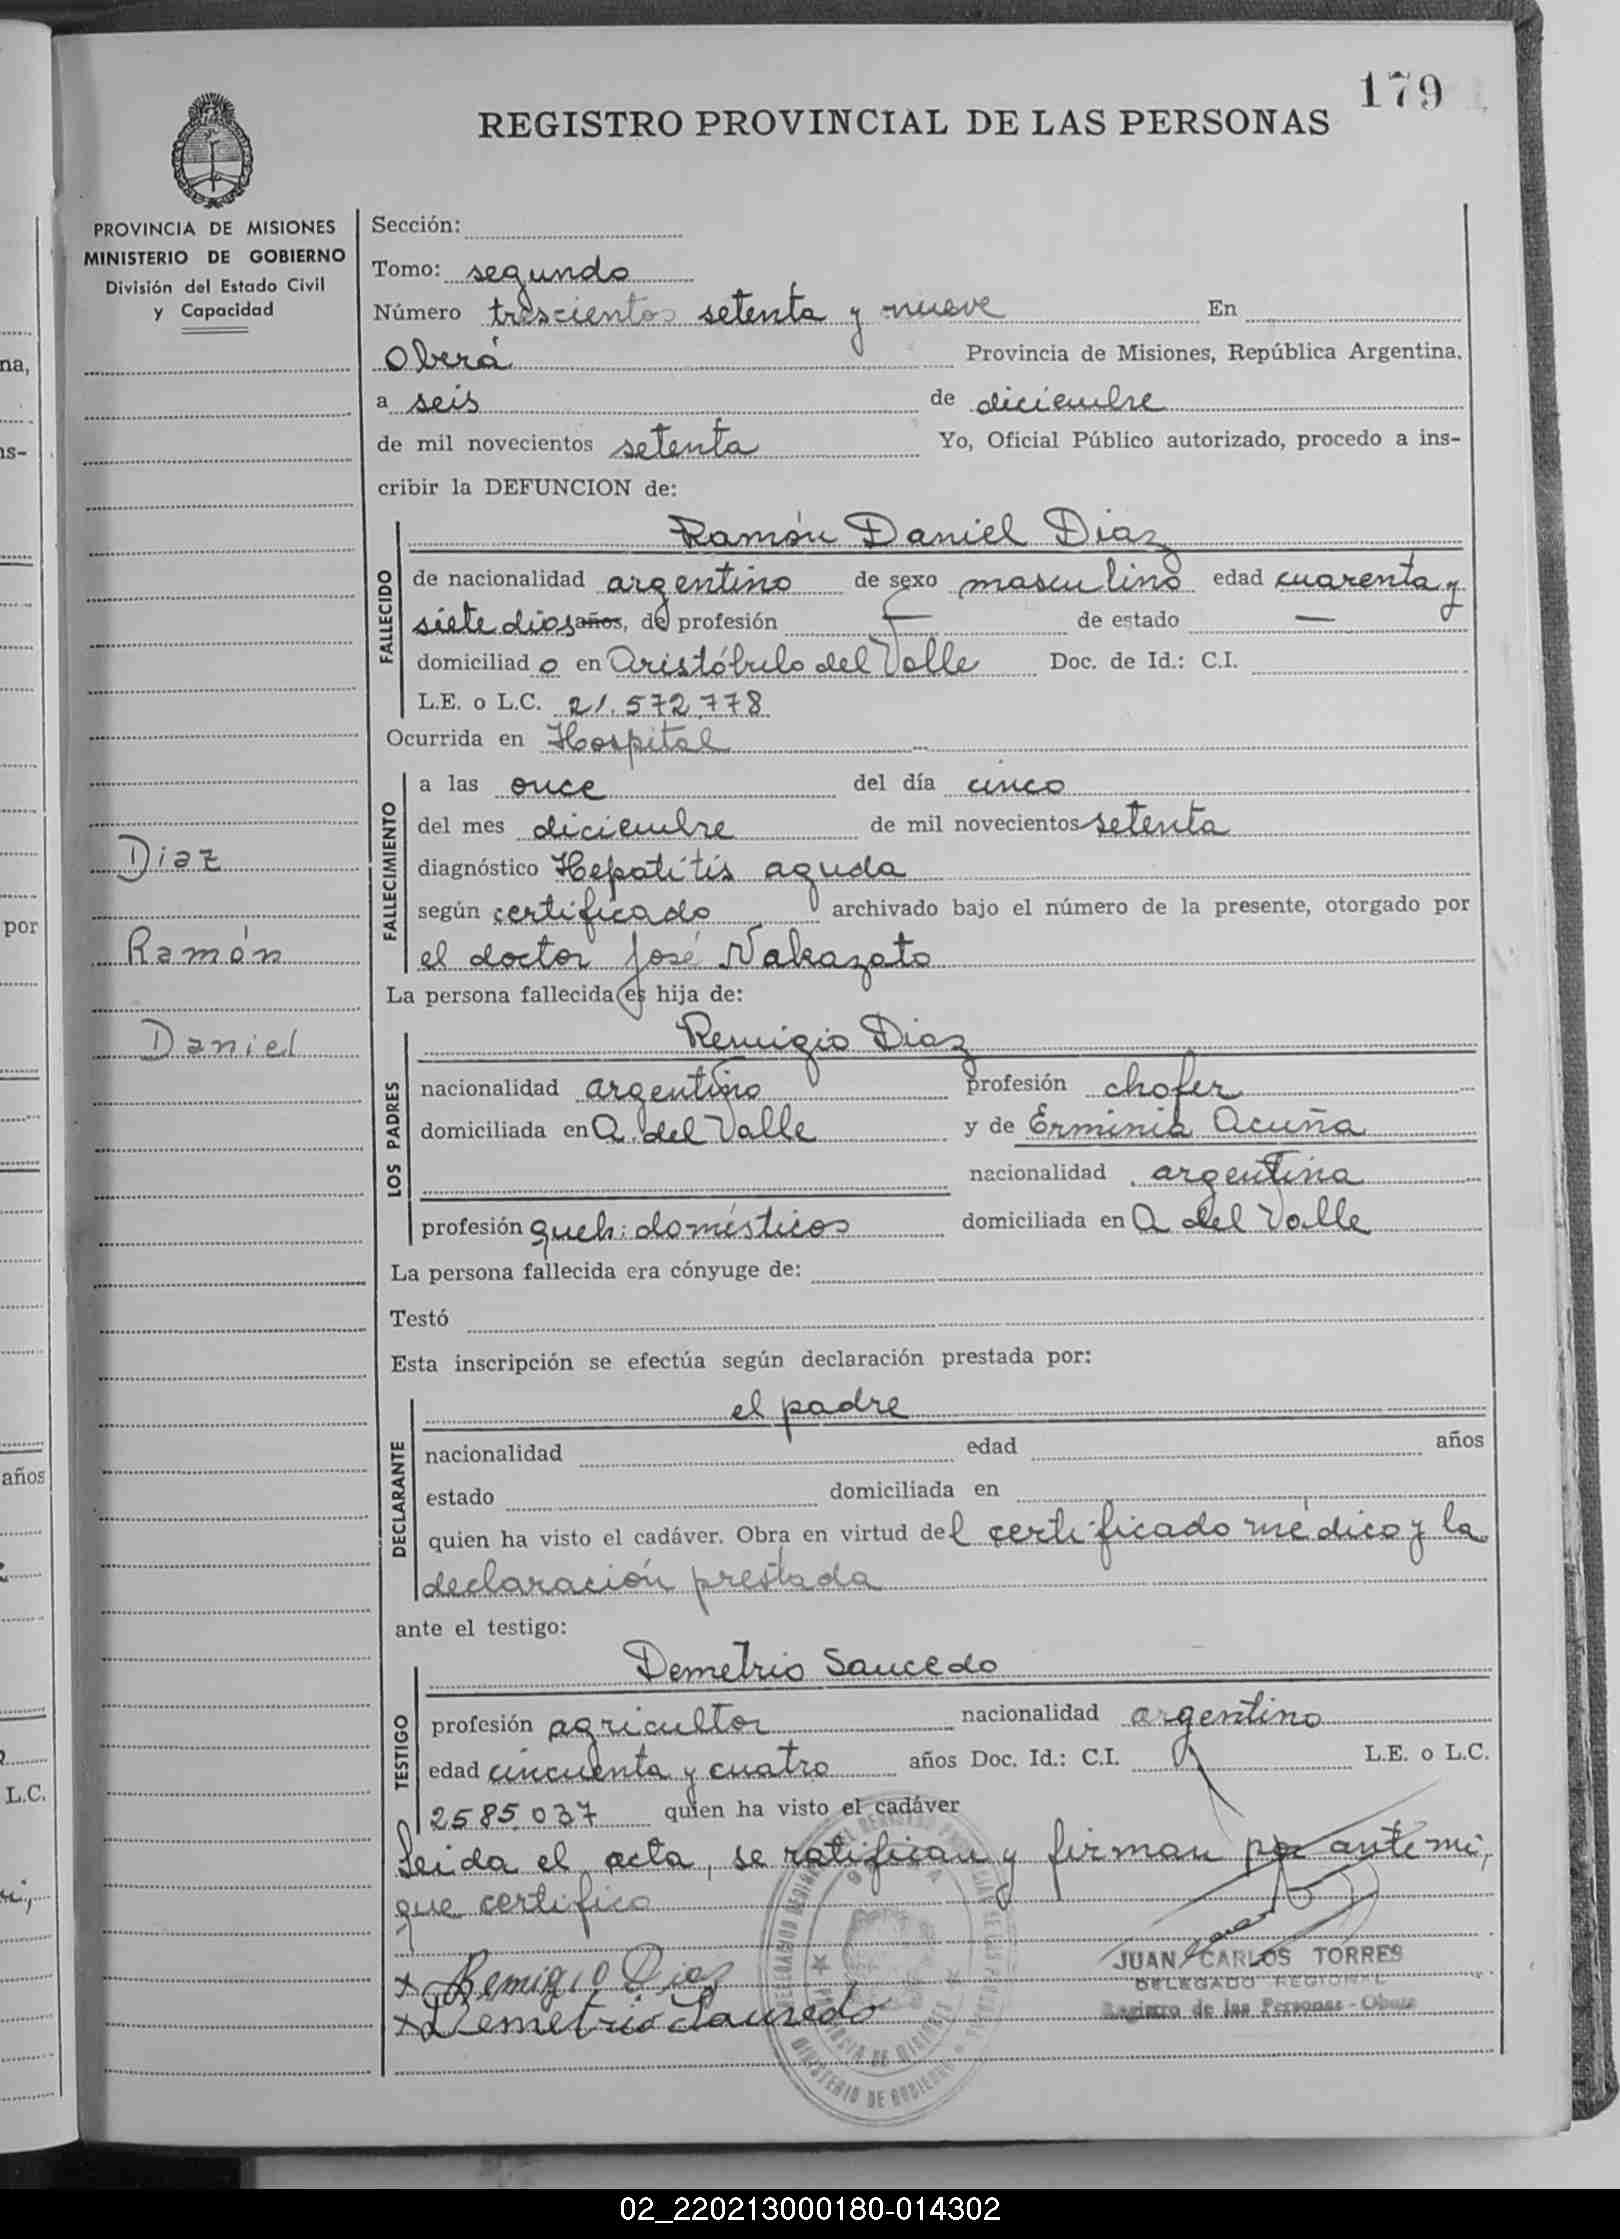 179
REGISTRO PROVINCIAL DE LAS PERSONAS
PROVINCIA DE MISIONES
MINISTERIO DE GOBIERNO
División del Estado Civil
y Capacidad
Diaz
Ramón
Daniel
Sección:
Tomo: segundo
Número trescientos setenta y nueve En
Oberá Provincia de Misiones, República Argentina,
a seis de diciembre
de mil novecientos setenta Yo, Oficial Público autorizado, procedo a ins-
cribir la DEFUNCION de:
FALLECIDO
Ramón Daniel Diaz
de nacionalidad argentino de sexo masculino edad cuarenta y
siete dias años, de profesión — de estado —
domiciliado en Aristóbulo del Valle Doc. de Id.: C.I.
L.E. o L.C. 21.572.778
Ocurrida en Hospital
FALLECIMIENTO
a las once del día cinco
del mes diciembre de mil novecientos setenta
diagnóstico Hepatitis aguda
según certificado archivado bajo el número de la presente, otorgado por
el doctor José Nakazato
La persona fallecida es hija de:
LOS PADRES
Remigio Diaz
nacionalidad argentino profesión chofer
domiciliada en A. del Valle y de Erminia Acuña
nacionalidad argentina
profesión queh. domésticos domiciliada en A del Valle
La persona fallecida era cónyuge de:
Testó
Esta inscripción se efectúa según declaración prestada por:
DECLARANTE
el padre
nacionalidad edad años
estado domiciliada en
quien ha visto el cadáver. Obra en virtud del certificado médico y la
declaración prestada
ante el testigo:
TESTIGO
Demetrio Saucedo
profesión agricultor nacionalidad argentino
edad cincuenta y cuatro años Doc. Id.: C.I. L.E. o L.C.
2585.037 quien ha visto el cadáver
Leida el acta, se ratifican y firman por ante mi,
que certifico
x Remigio Diaz
x Demetrio Saucedo
JUAN CARLOS TORRES
DELEGADO REGIONAL
Registro de las Personas - Obera
PROVINCIA DE MISIONES
MINISTERIO DE GOBIERNO
na,
ns-
por
años
L.C.
02_220213000180-014302